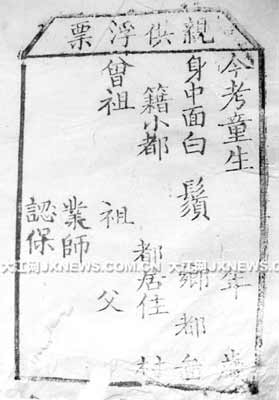 親供浮票
今考童生 年 歲
身中面白 鬚 鄉都啚
籍小都 都居住 村
曾祖 祖 父
業師
認保
大江网JXNEWS.COM.CN
大江网JXNEWS.COM.CN